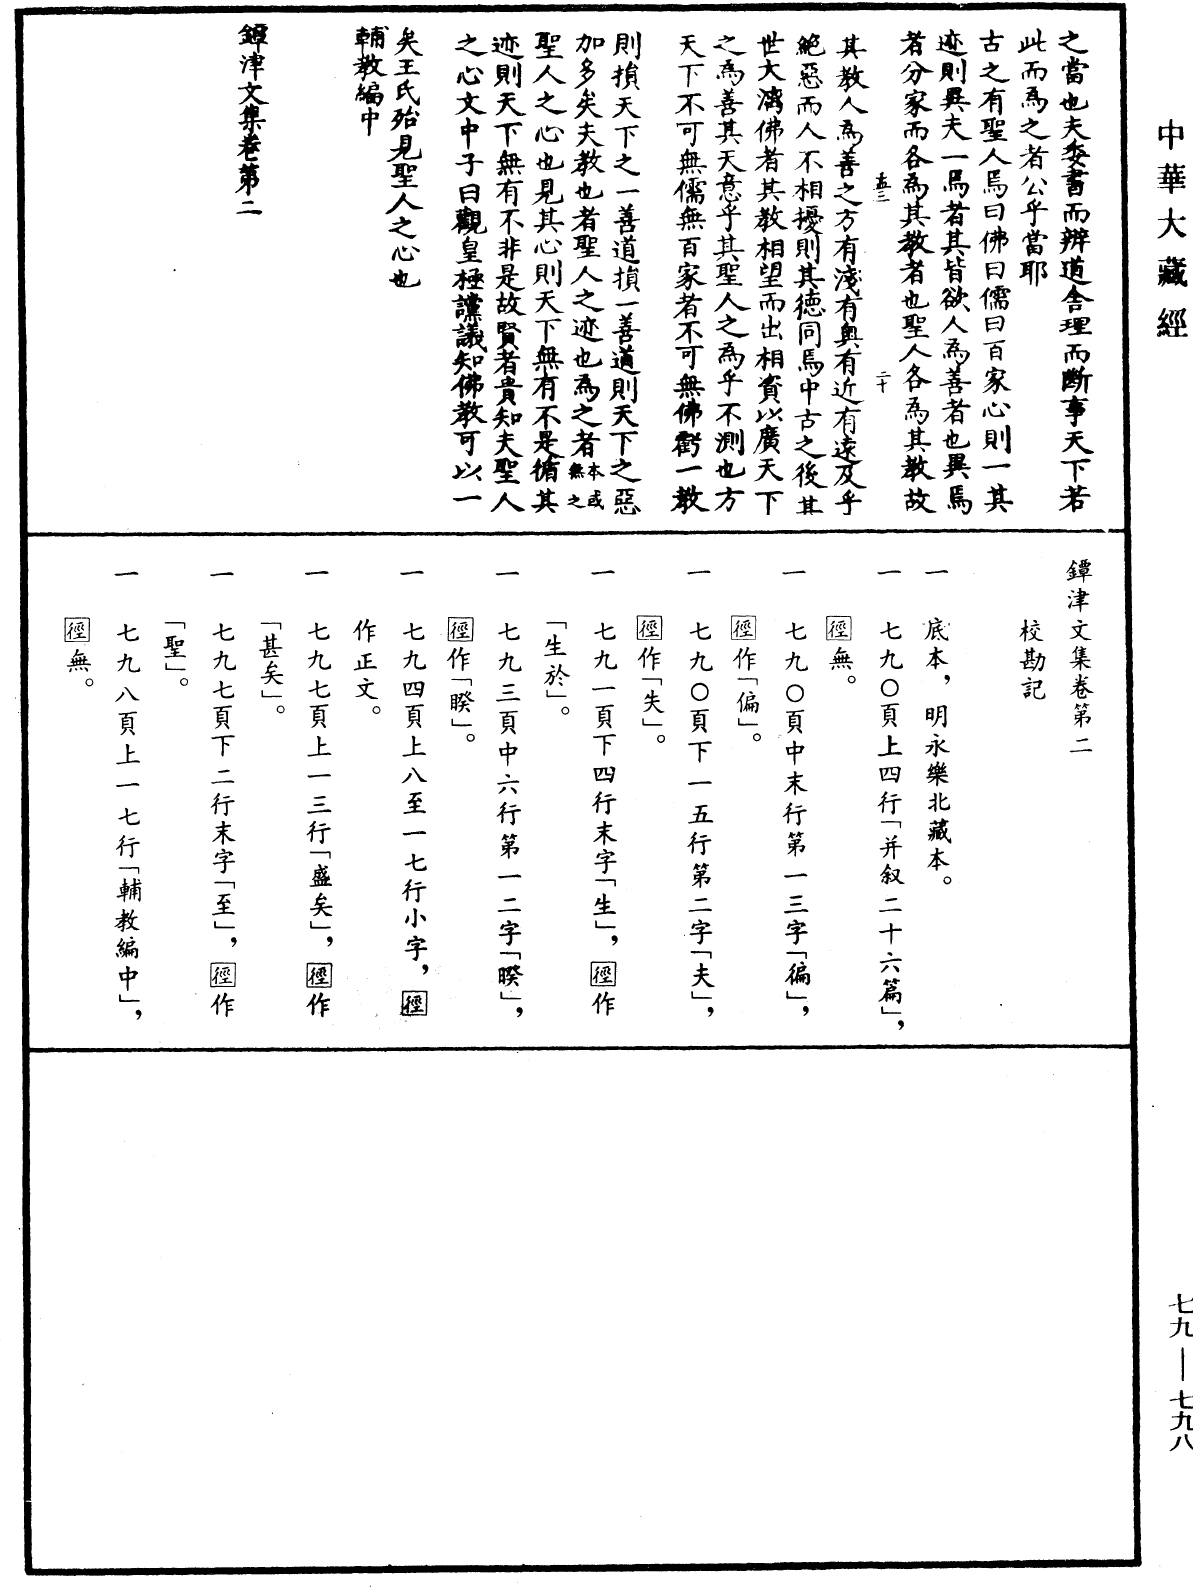 中華大藏經
之當也夫委書而辨道舍理而斷事天下若
此而為之者公乎當耶
古之有聖人焉曰佛曰儒曰百家心則一其
迹則異夫一焉者其皆欲人為善者也異焉
者分家而各為其教者也聖人各為其教故
其教人為善之方有淺有奧有近有遠及乎
絕惡而人不相擾則其德同焉中古之後其
世大漓佛者其教相望而出相資以廣天下
之為善其天意乎其聖人之為乎不測也方
天下不可無儒無百家者不可無佛虧一教
則損天下之一善道損一善道則天下之惡
加多矣夫教也者聖人之迹也為之者本或無之
聖人之心也見其心則天下無有不是循其
迹則天下無有不非是故賢者貴知夫聖人
之心文中子曰觀皇極讜議知佛教可以一
矣王氏殆見聖人之心也
輔教編中
鐔津文集卷第二
鐔津文集卷第二
校勘記
一 底本，明永樂北藏本。
一 七九〇頁上四行「并叙二十六篇」，
徑無。
一 七九〇頁中末行第一三字「徧」，
徑作「偏」。
一 七九〇頁下一五行第二字「夫」，
徑作「失」。
一 七九一頁下四行末字「生」，徑作
「生於」。
一 七九三頁中六行第一二字「暌」，
徑作「睽」。
一 七九四頁上八至一七行小字，徑
作正文。
一 七九七頁上一三行「盛矣」，徑作
「甚矣」。
一 七九七頁下二行末字「至」，徑作
「聖」。
一 七九八頁上一七行「輔教編中」，
徑無。
七九—七九八